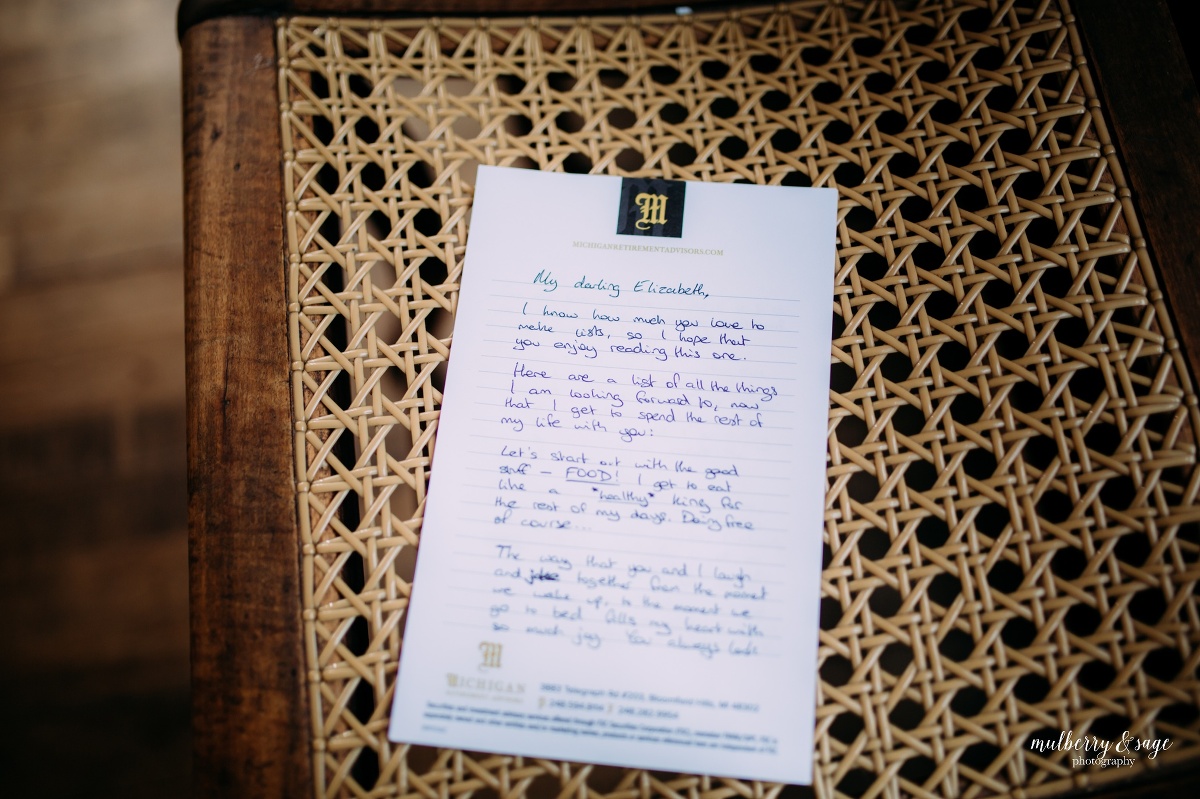 M
MICHIGANRETIREMENTADVISORS.COM
My darling Elizabeth,
I know how much you love to
make lists, so I hope that
you enjoy reading this one.
Here are a list of all the things
I am looking forward to, now
that I get to spend the rest of
my life with you:
Let's start out with the good
stuff – FOOD! I get to eat
like a *healthy* king for
the rest of my days. Dairy free
of course...
The way that you and I laugh
and joke together from the moment
we wake up, to the moment we
go to bed fills my heart with
so much joy. You always look
M
MICHIGAN
Telegraph Rd #203, Bloomfield Hills, MI 48302
mulberry & sage
photography